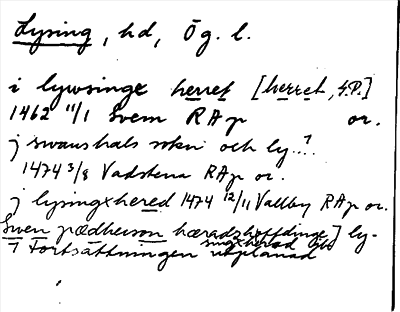 Lysing, hd, Ög. l.
i lywsinge herret [herret, S.P.]
1462 11/1 Svem RAp or.
j swanshals sokn och ly...?
1474 3/8 Vadstena RAp or.
j lysingxhered 1474 12/11 Vallby RAp or.
Swen pædherson hæradzhoffdinge j ly-
singxherad
? Fortsättningen utplånad